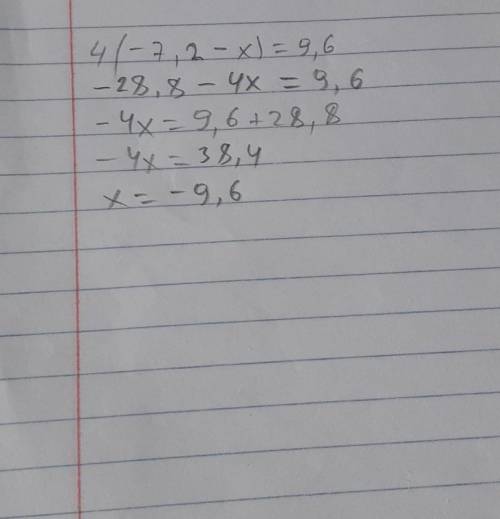 4(-7,2-x)=9,6
-28,8-4x=9,6
-4x=9,6+28,8
-4x=38,4
x=-9,6